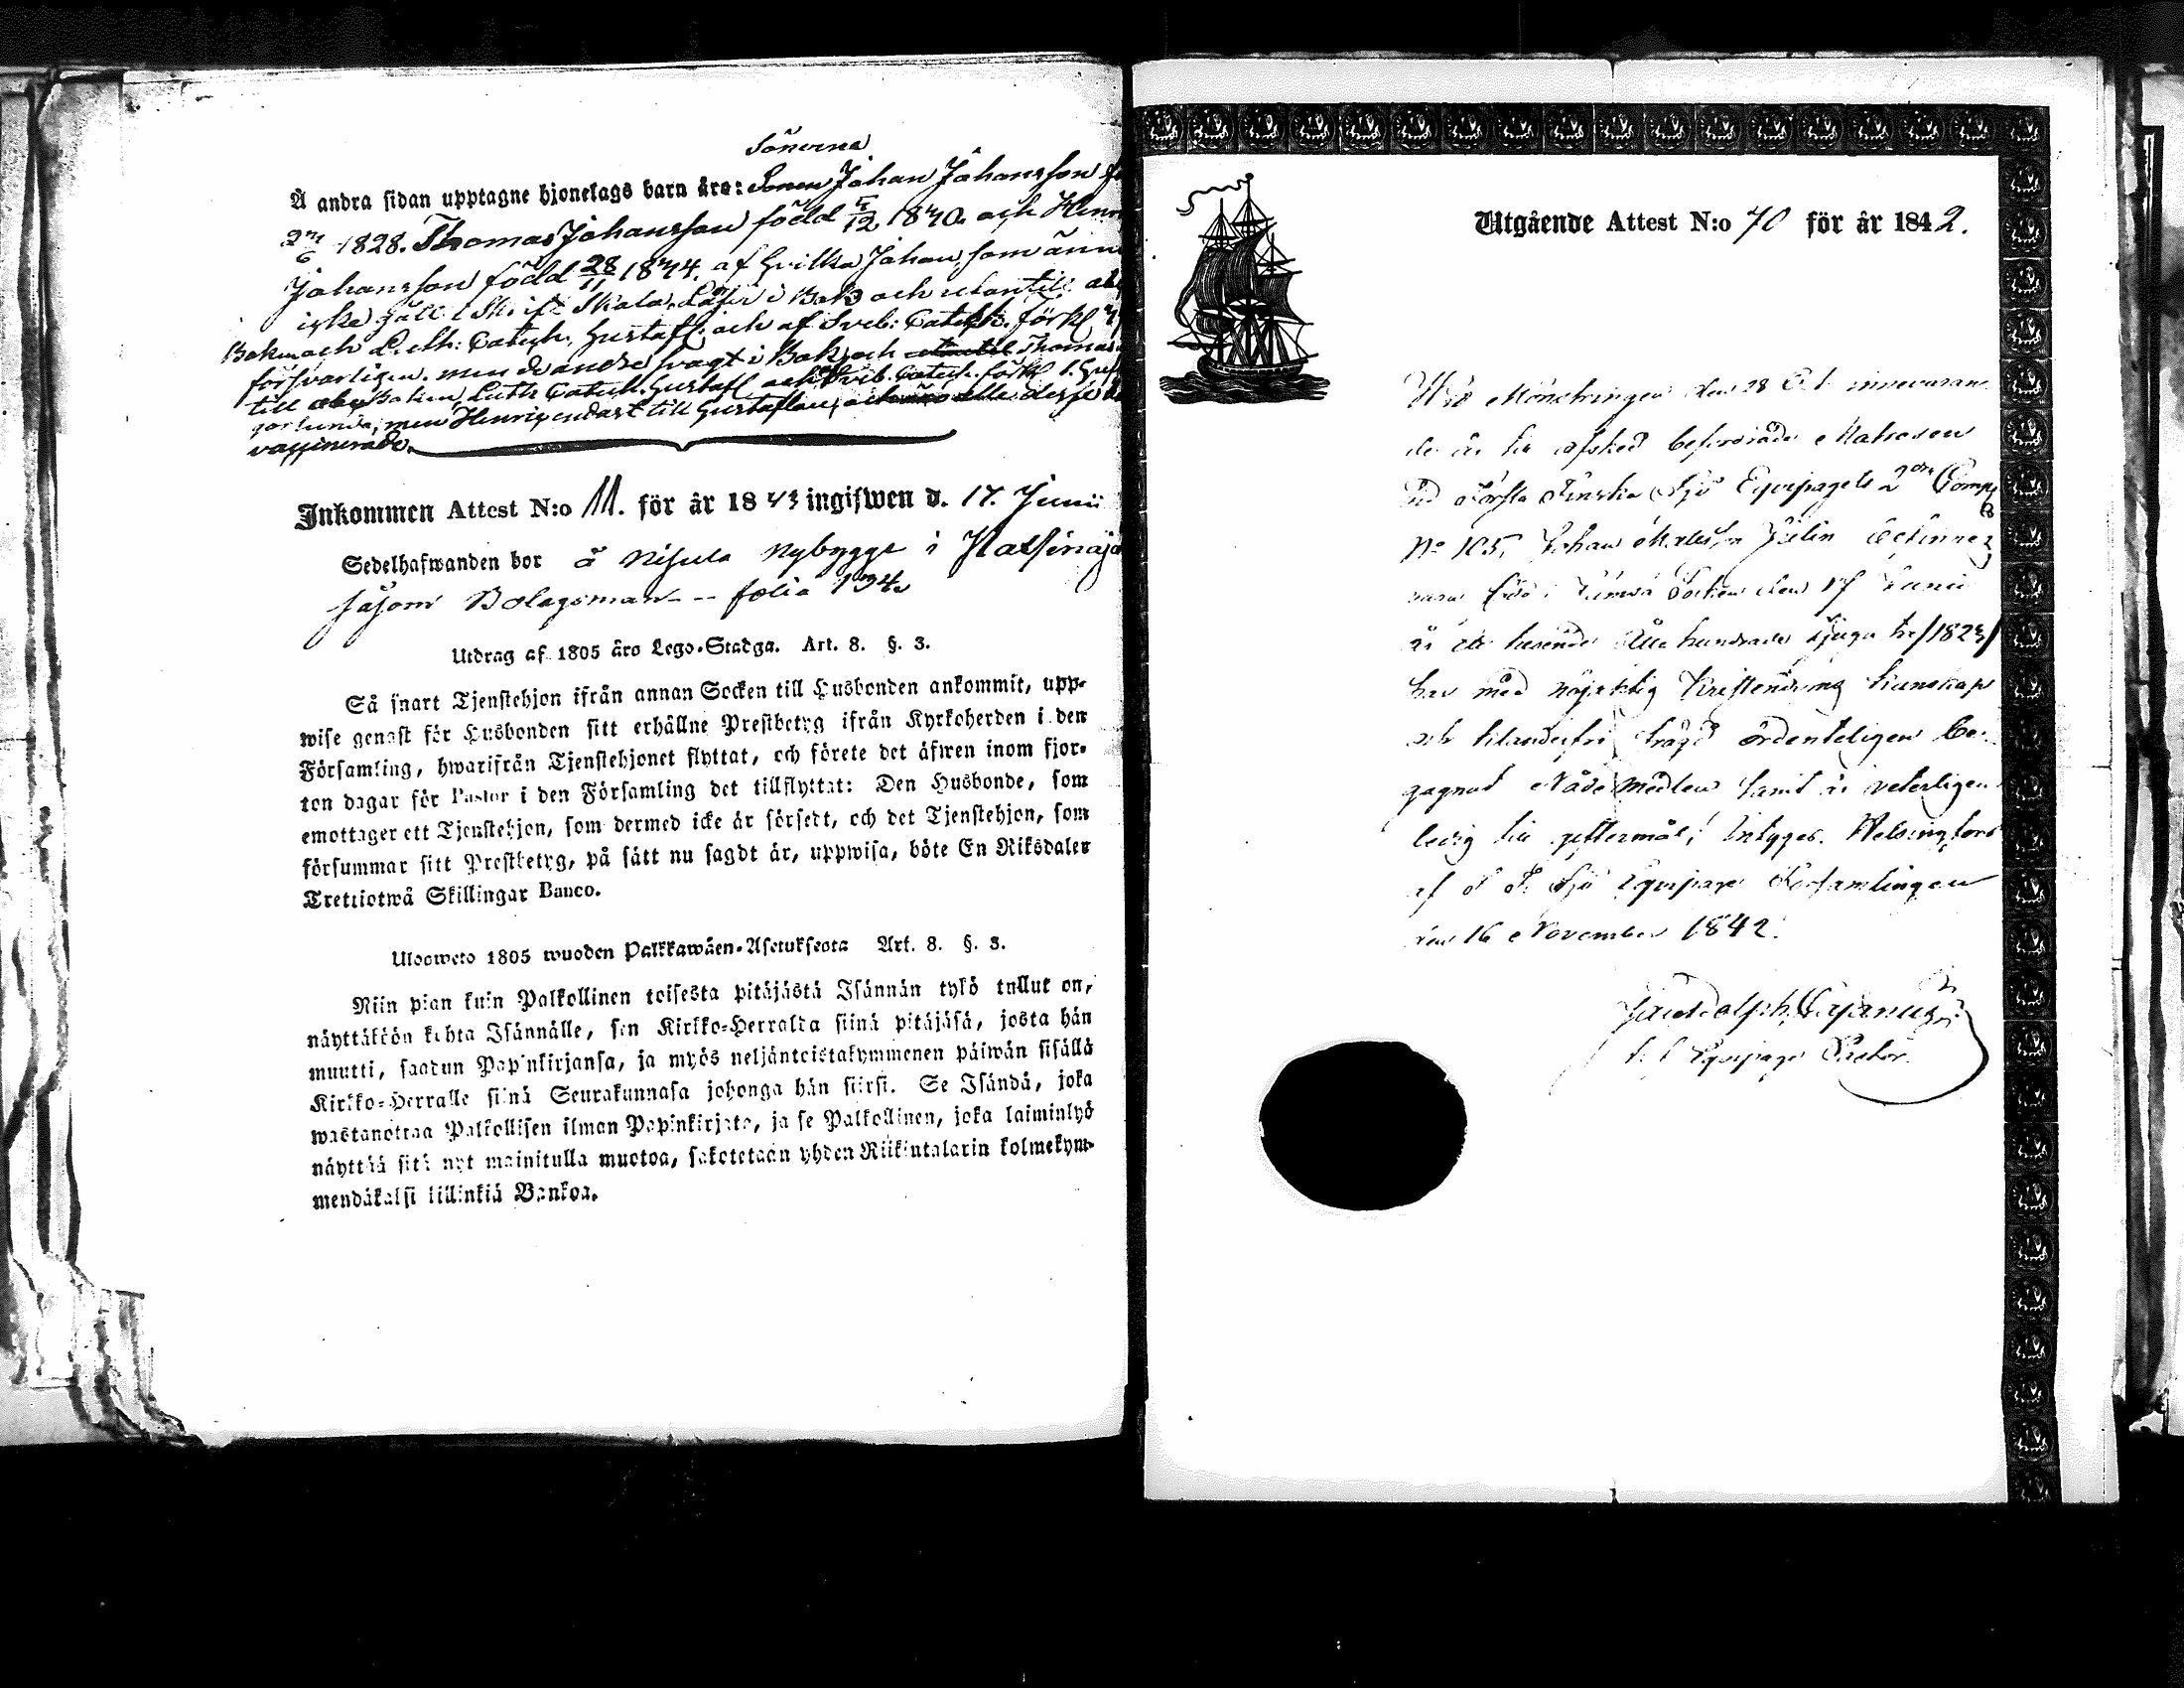 Sönerna
Å andra sidan upptagne hjonelags barn äro: Sonen Johan Johansson
1828. Thomas Johansson född 1840. och
Johansson född 28/11 1844. af hvilka Johan, som
icke Skala, i Bok och utantill
Boken och Luth: Catech. Gustafl: och af Sveb: Catech. förkl
försvarligen. men de andre svagt i Bok, och Thomas
till Boken Luth Catech. Gustafl och Sveb. Catech. förkl
men Henric endast till Gustaflan, desse
vaccinerade.
Inkommen Attest N:o 11. för år 1843 ingifwen d. 17. Junii
Sedelhafwanden bor å Nisula Nybygge i
såsom Bolagsman -- folio 134
Utdrag af 1805 års Lego-Stadga. Art. 8. §. 3.
Så snart Tjenstehjon ifrån annan Socken till Husbonden ankommit, upp-
wise genast för Husbonden sitt erhållne Prestbetyg ifrån Kyrkoherden i den
Församling, hwarifrån Tjenstehjonet flyttat, och förete det äfwen inom fjor-
ton dagar för Pastor i den Församling det tillflyttat: Den Husbonde, som
emottager ett Tjenstehjon, som dermed icke är försedt, och det Tjenstehjon, som
försummar sitt Prestbetyg, på sätt nu sagdt är, uppwisa, böte En Riksdaler
Trettiotwå Skillingar Banco.
Ulosweto 1805 wuoden Palkkawäen-Asetuksesta Art. 8. §. 3.
Niin pian kuin Palkollinen toisesta pitäjästä Isännän tykö tullut on,
näyttäköön kohta Isännälle, sen Kirkko-Herralta siinä pitäjäsä, josta hän
muutti, saadun Papinkirjansa, ja myös neljäntoistakymmenen päiwän sisällä
Kirkko-Herralle siinä Seurakunnasa johonga hän siirsi. Se Isändä, joka
wastanottaa Palkollisen ilman Papinkirjata, ja se Palkollinen, joka laiminlyö
näyttää sitä nyt mainitulla muotoa, sakotetaan yhden Riikintalarin kolmekym-
mendäkaksi killinkiä Bankoa.
Utgående Attest N:o 70 för år 1842.
Wid Mönstringen den 28 Oct. innevaran
de år till afsked befordrade Matrosen
vid Första Finska Sjö Equipagets 2dra Comp
No 105, Johan
född i Socken den 17 Junii
år ett tusende Åtta hundrade tjugu tre/1823/
har med nöjaktig Kristendoms kunskap
och frägd ordenteligen be-
gagnat Nådemedlen samt är veterligen
ledig till giftermål; Intygas. Helsingfors
af F. F. Sjö Equipage Församlingen
den 16 November 1842.
Equipage Pastor.